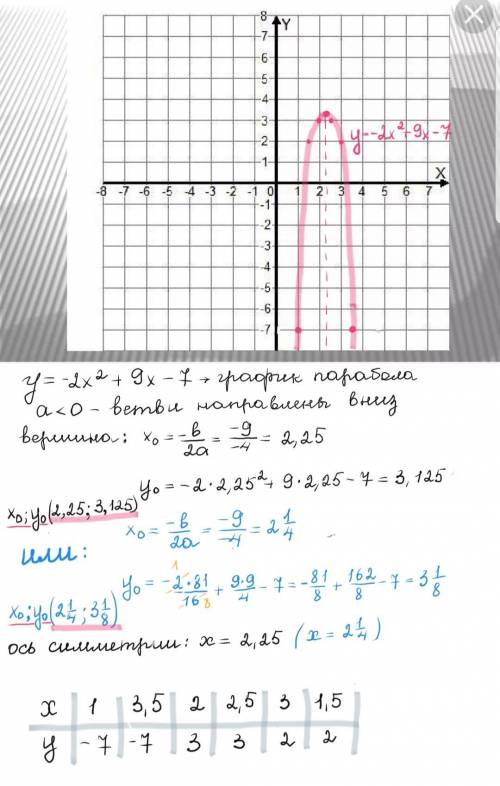 8 Y
7
6
5
4
3
2
1
y=-2x²+9x-7
X
-8 -7 -6 -5 -4 -3 -2 -1 0 1 2 3 4 5 6 7
-1
-2
-3
-4
-5
-6
-7
y = -2x² + 9x - 7 → график парабола
a < 0 - ветви направлены вниз
вершина: x₀ = -b/2a = -9/-4 = 2,25
y₀ = -2·2,25² + 9·2,25 - 7 = 3,125
x₀; y₀ (2,25; 3,125)
x₀ = -b/2a = -9/-4 = 2 1/4
или:
y₀ = - 2·81/16 + 9·9/4 - 7 = -81/8 + 162/8 - 7 = 3 1/8
1
8
x₀; y₀ (2 1/4; 3 1/8)
ось симметрии: x = 2,25 (x = 2 1/4)
x | 1 | 3,5 | 2 | 2,5 | 3 | 1,5
y | -7 | -7 | 3 | 3 | 2 | 2